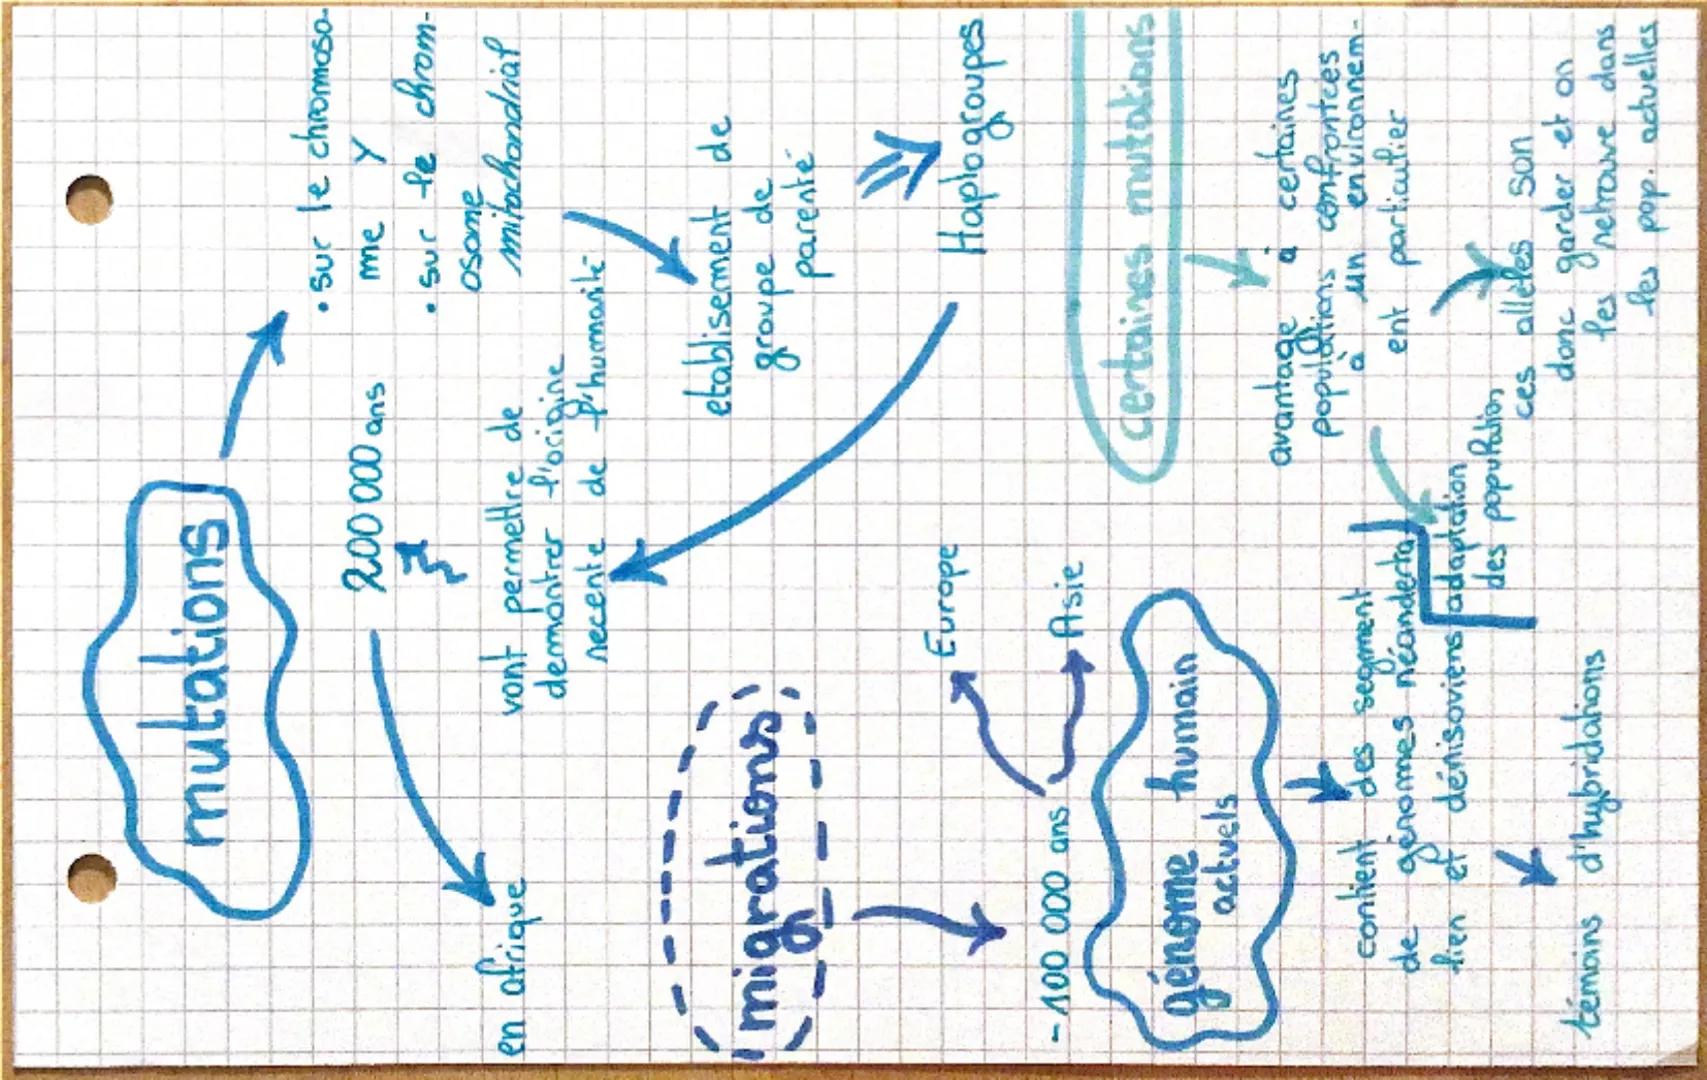 mutations
• sur le chromoso-
me Y
• sur le chrom-
osome
mitochondrial
200 000 ans
vont permettre de
demontrer l'origine
recente de l'humanité
en afrique
etablisement de
groupe de
parenté
Haplogroupes
migrations
- 100 000 ans
Europe
Asie
certaines mutations
avantage à certaines
populations confrontées
à un environnem-
ent particulier
ces allèles son
donc garder et on
les retrouve dans
les pop. actuelles
adaptation
des population
génome humain
actuels
contient des segment
de génomes néanderta
lien et dénisoviens
témoins d'hybridations